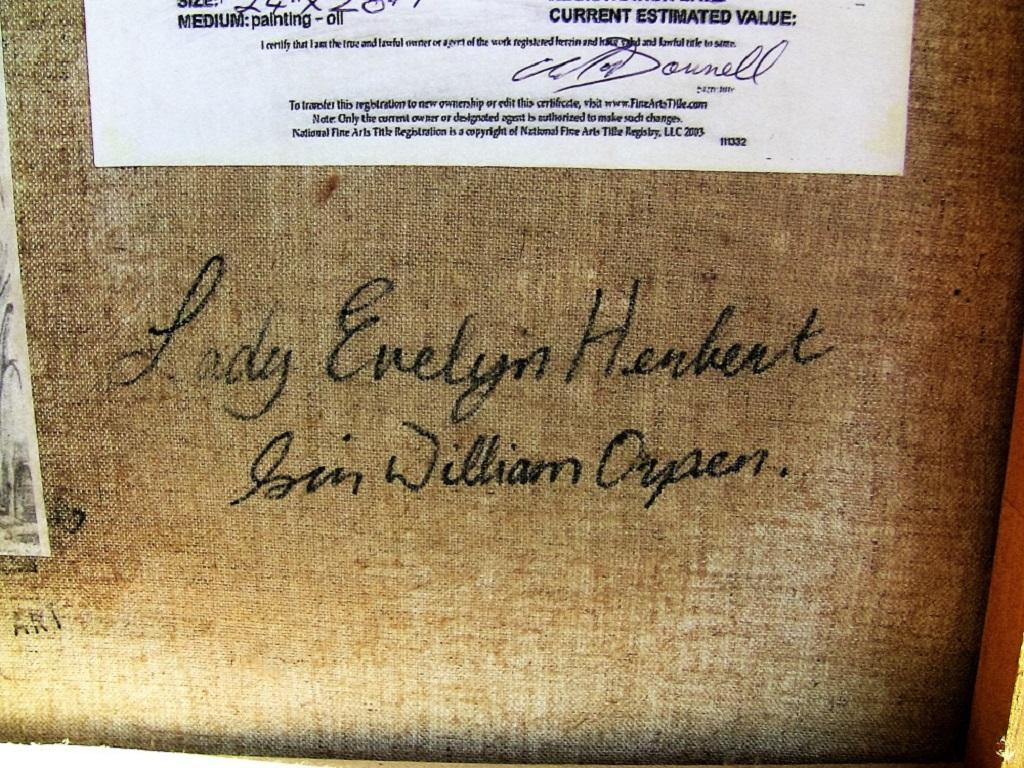 SIZE: 24" X 20"
MEDIUM: painting - oil
CURRENT ESTIMATED VALUE:
I certify that I am the true and lawful owner or agent of the work registered herein and have valid and lawful title to same.
To transfer this registration to new ownership or edit this certificate, visit www.FineArtsTitle.com
Note: Only the current owner or designated agent is authorized to make such changes.
National Fine Arts Title Registration is a copyright of National Fine Arts Title Registry, LLC 2003
111332
Lady Evelyn Herbert
Sir William Orpen.
ART